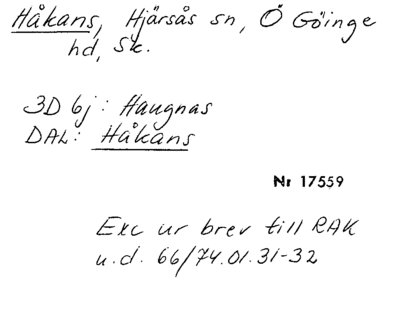 Håkans, Hjärsås sn, Ö Göinge
hd, Sk.
3D 6j: Haugnas
DAL: Håkans
Nr 17559
Exc ur brev till RAK
u.d. 66/74.01.31-32